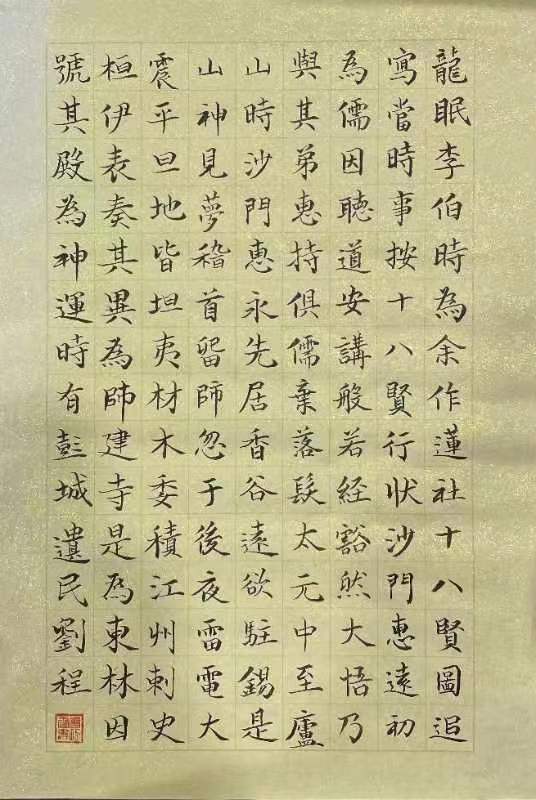 龍眠李伯時為余作蓮社十八賢圖追
寫當時事按十八賢行狀沙門惠遠初
為儒因聽道安講般若経豁然大悟乃
與其弟惠持俱儒棄落髮太元中至廬
山時沙門惠永先居香谷遠欲駐錫是
山山神見夢稽首留師忽于後夜雷電大
震平旦地皆坦夷材木委積江州刺史
桓伊表奏其異為師建寺是為東林因
號其殿為神運時有彭城遺民劉程